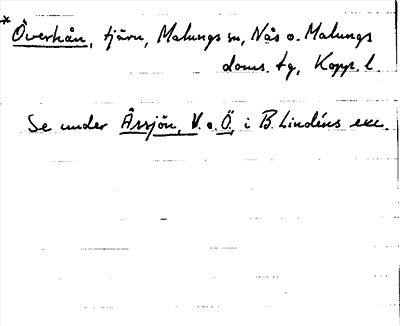 * Överhån, tjärn, Malungs sn, Nås o. Malungs
doms. tg, Kopp. l.
Se under Åssjön, V. o. Ö, i B. Lindéns exc.